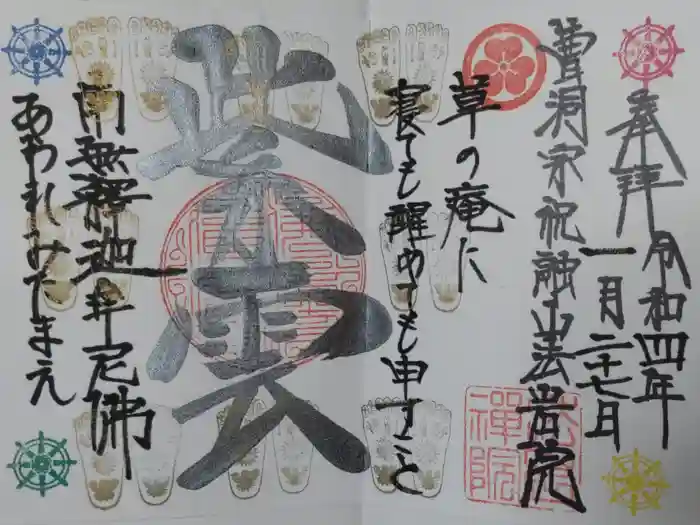 奉拝
令和四年
一月二十七日
曹洞宗祝融山法岩院
草の庵に
寝ても醒めても申すこと
紫雲
南無釋迦牟尼佛
あわれみたまえ
禪院